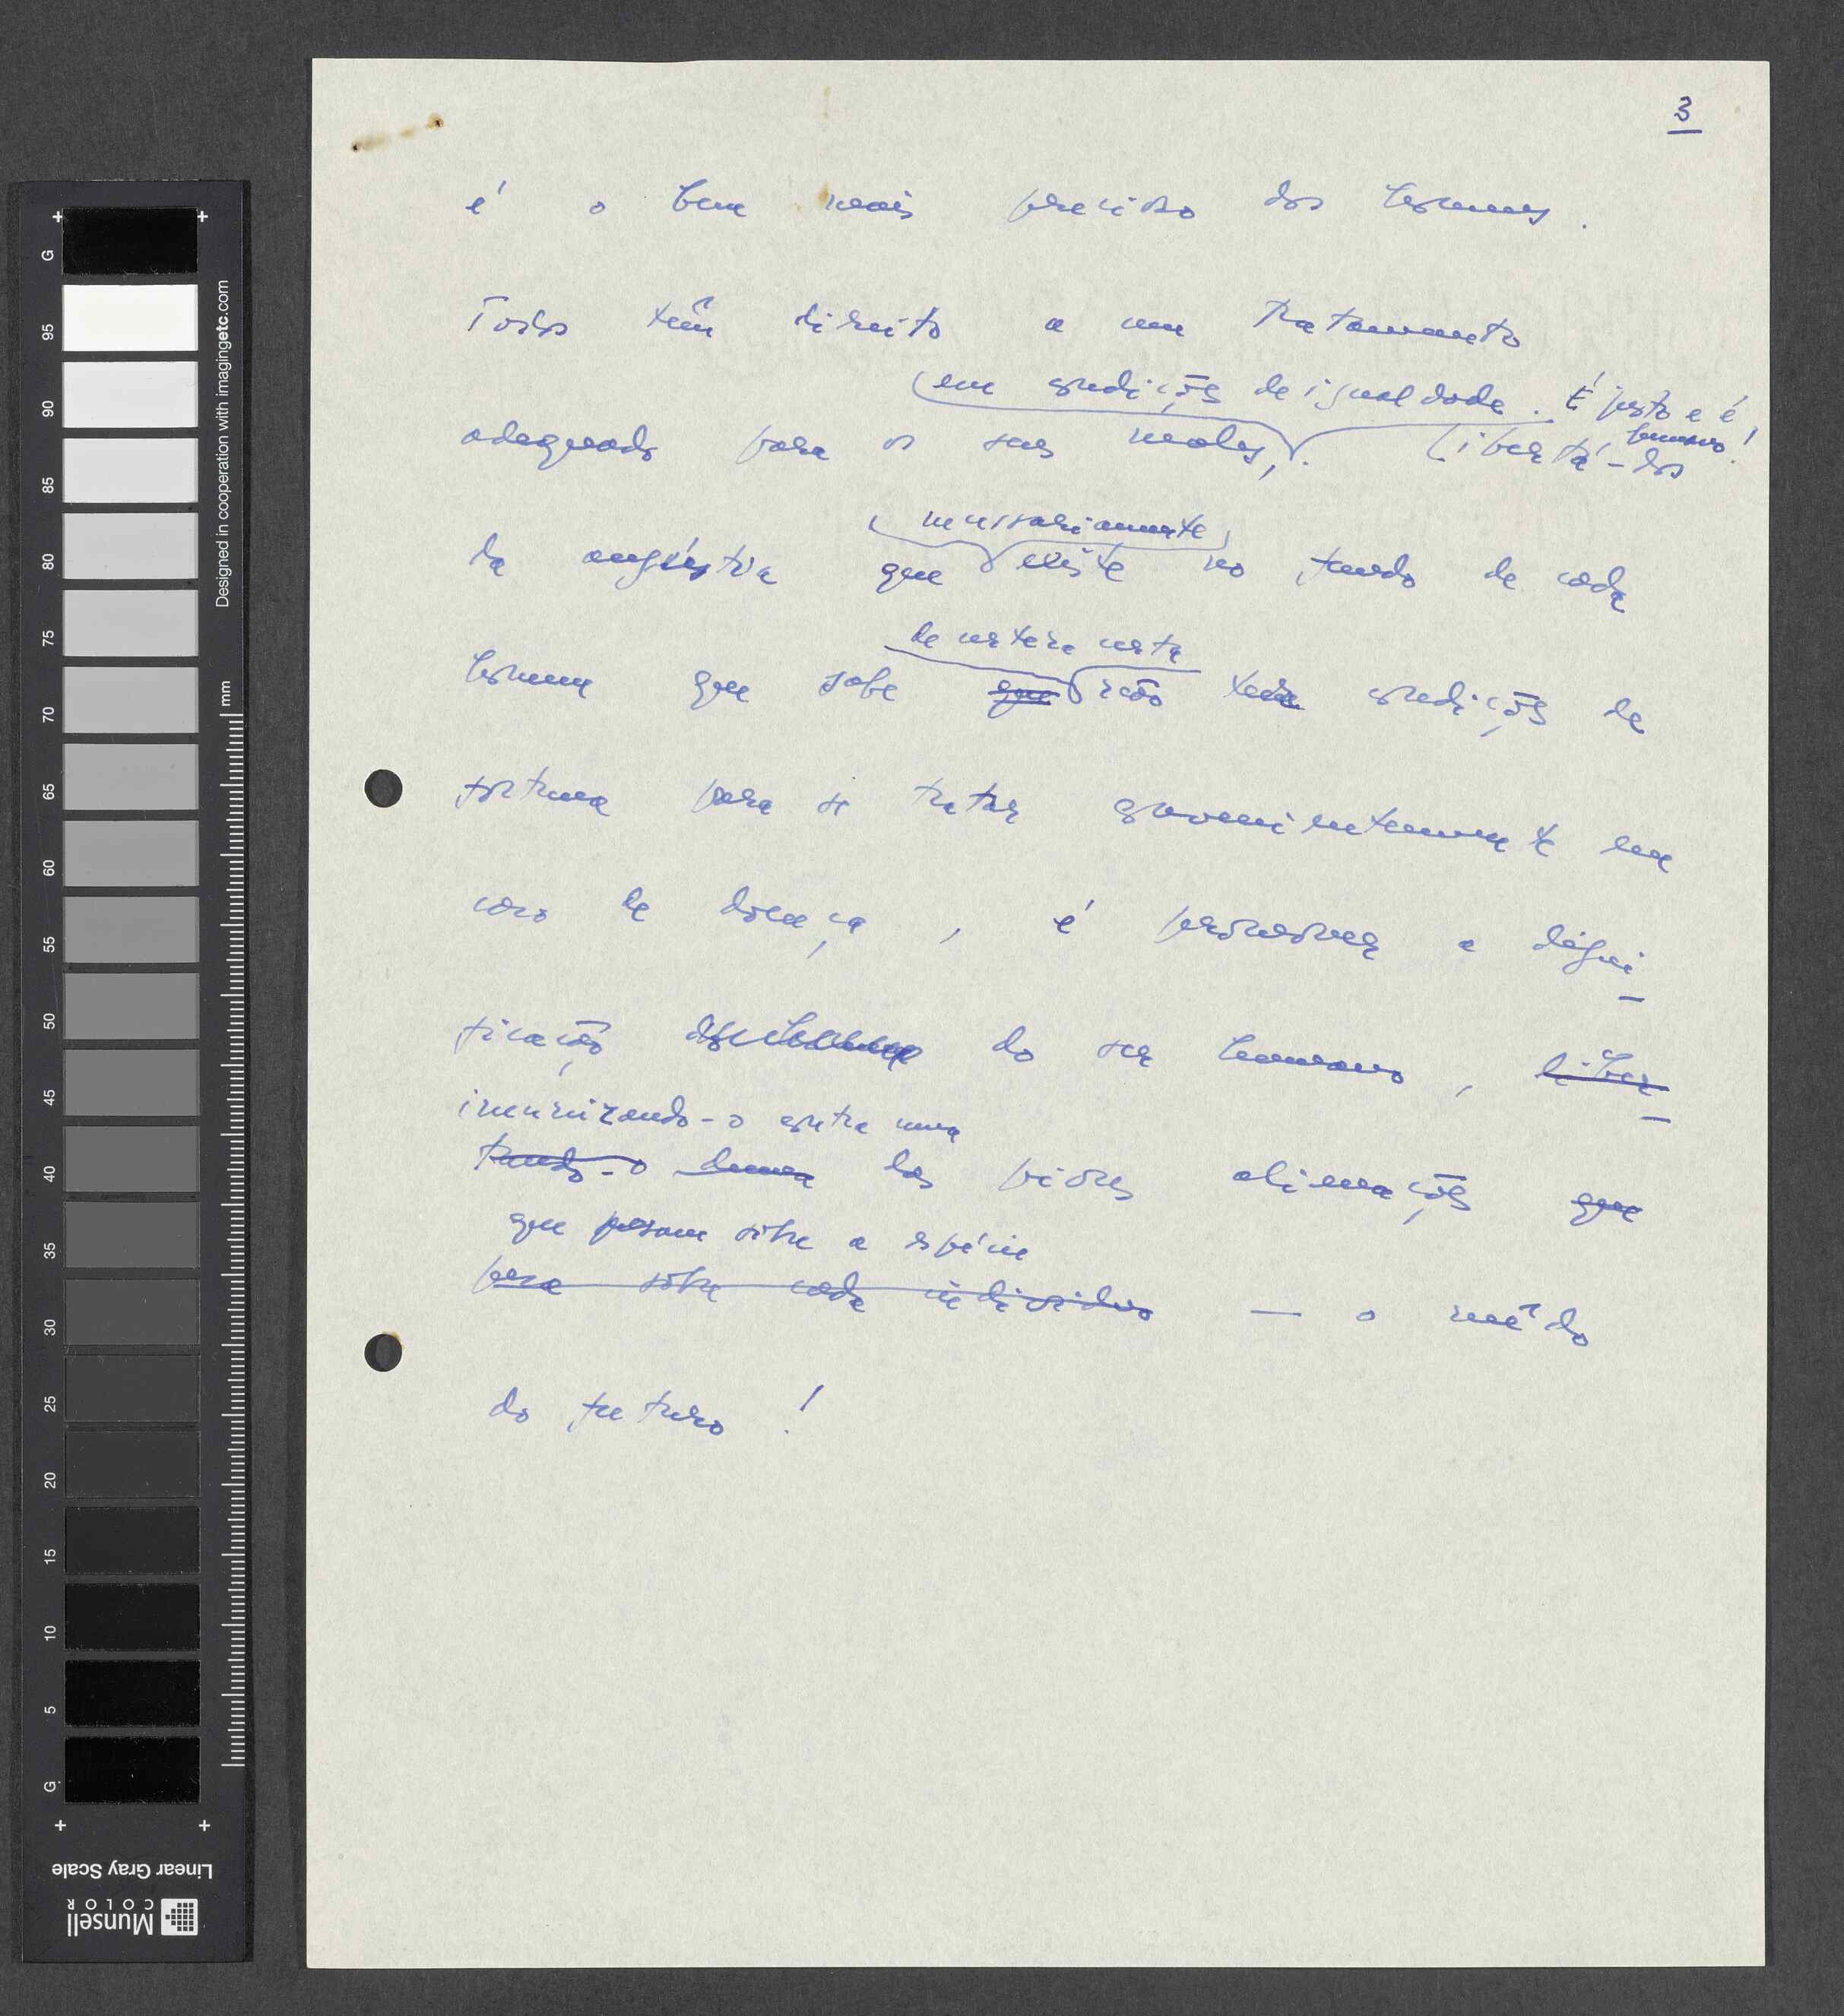 3
é o bem mais precioso dos homens.
Todos têm direito a um tratamento
em condições de igualdade. É justo e é
humano!
adequado para os seus males, . Libertá-los
necessariamente
da angústia que existe no fundo de cada
de certeza certa
homem que sabe que não tem condições de
fortuna para se tratar convenientemente em
caso de doença, é promover a digni
ficação do ser humano, liber
imunizando-o contra uma
tando-o duma das piores alienações que
que pesam sôbre a espécie
pesa sôbre cada indivíduo — o mêdo
do futuro!
G
95
90
85
80
75
70
65
60
55
50
45
40
35
30
25
20
15
10
5
G
Designed in cooperation with imagingetc.com
mm
Linear Gray Scale
Munsell
COLOR